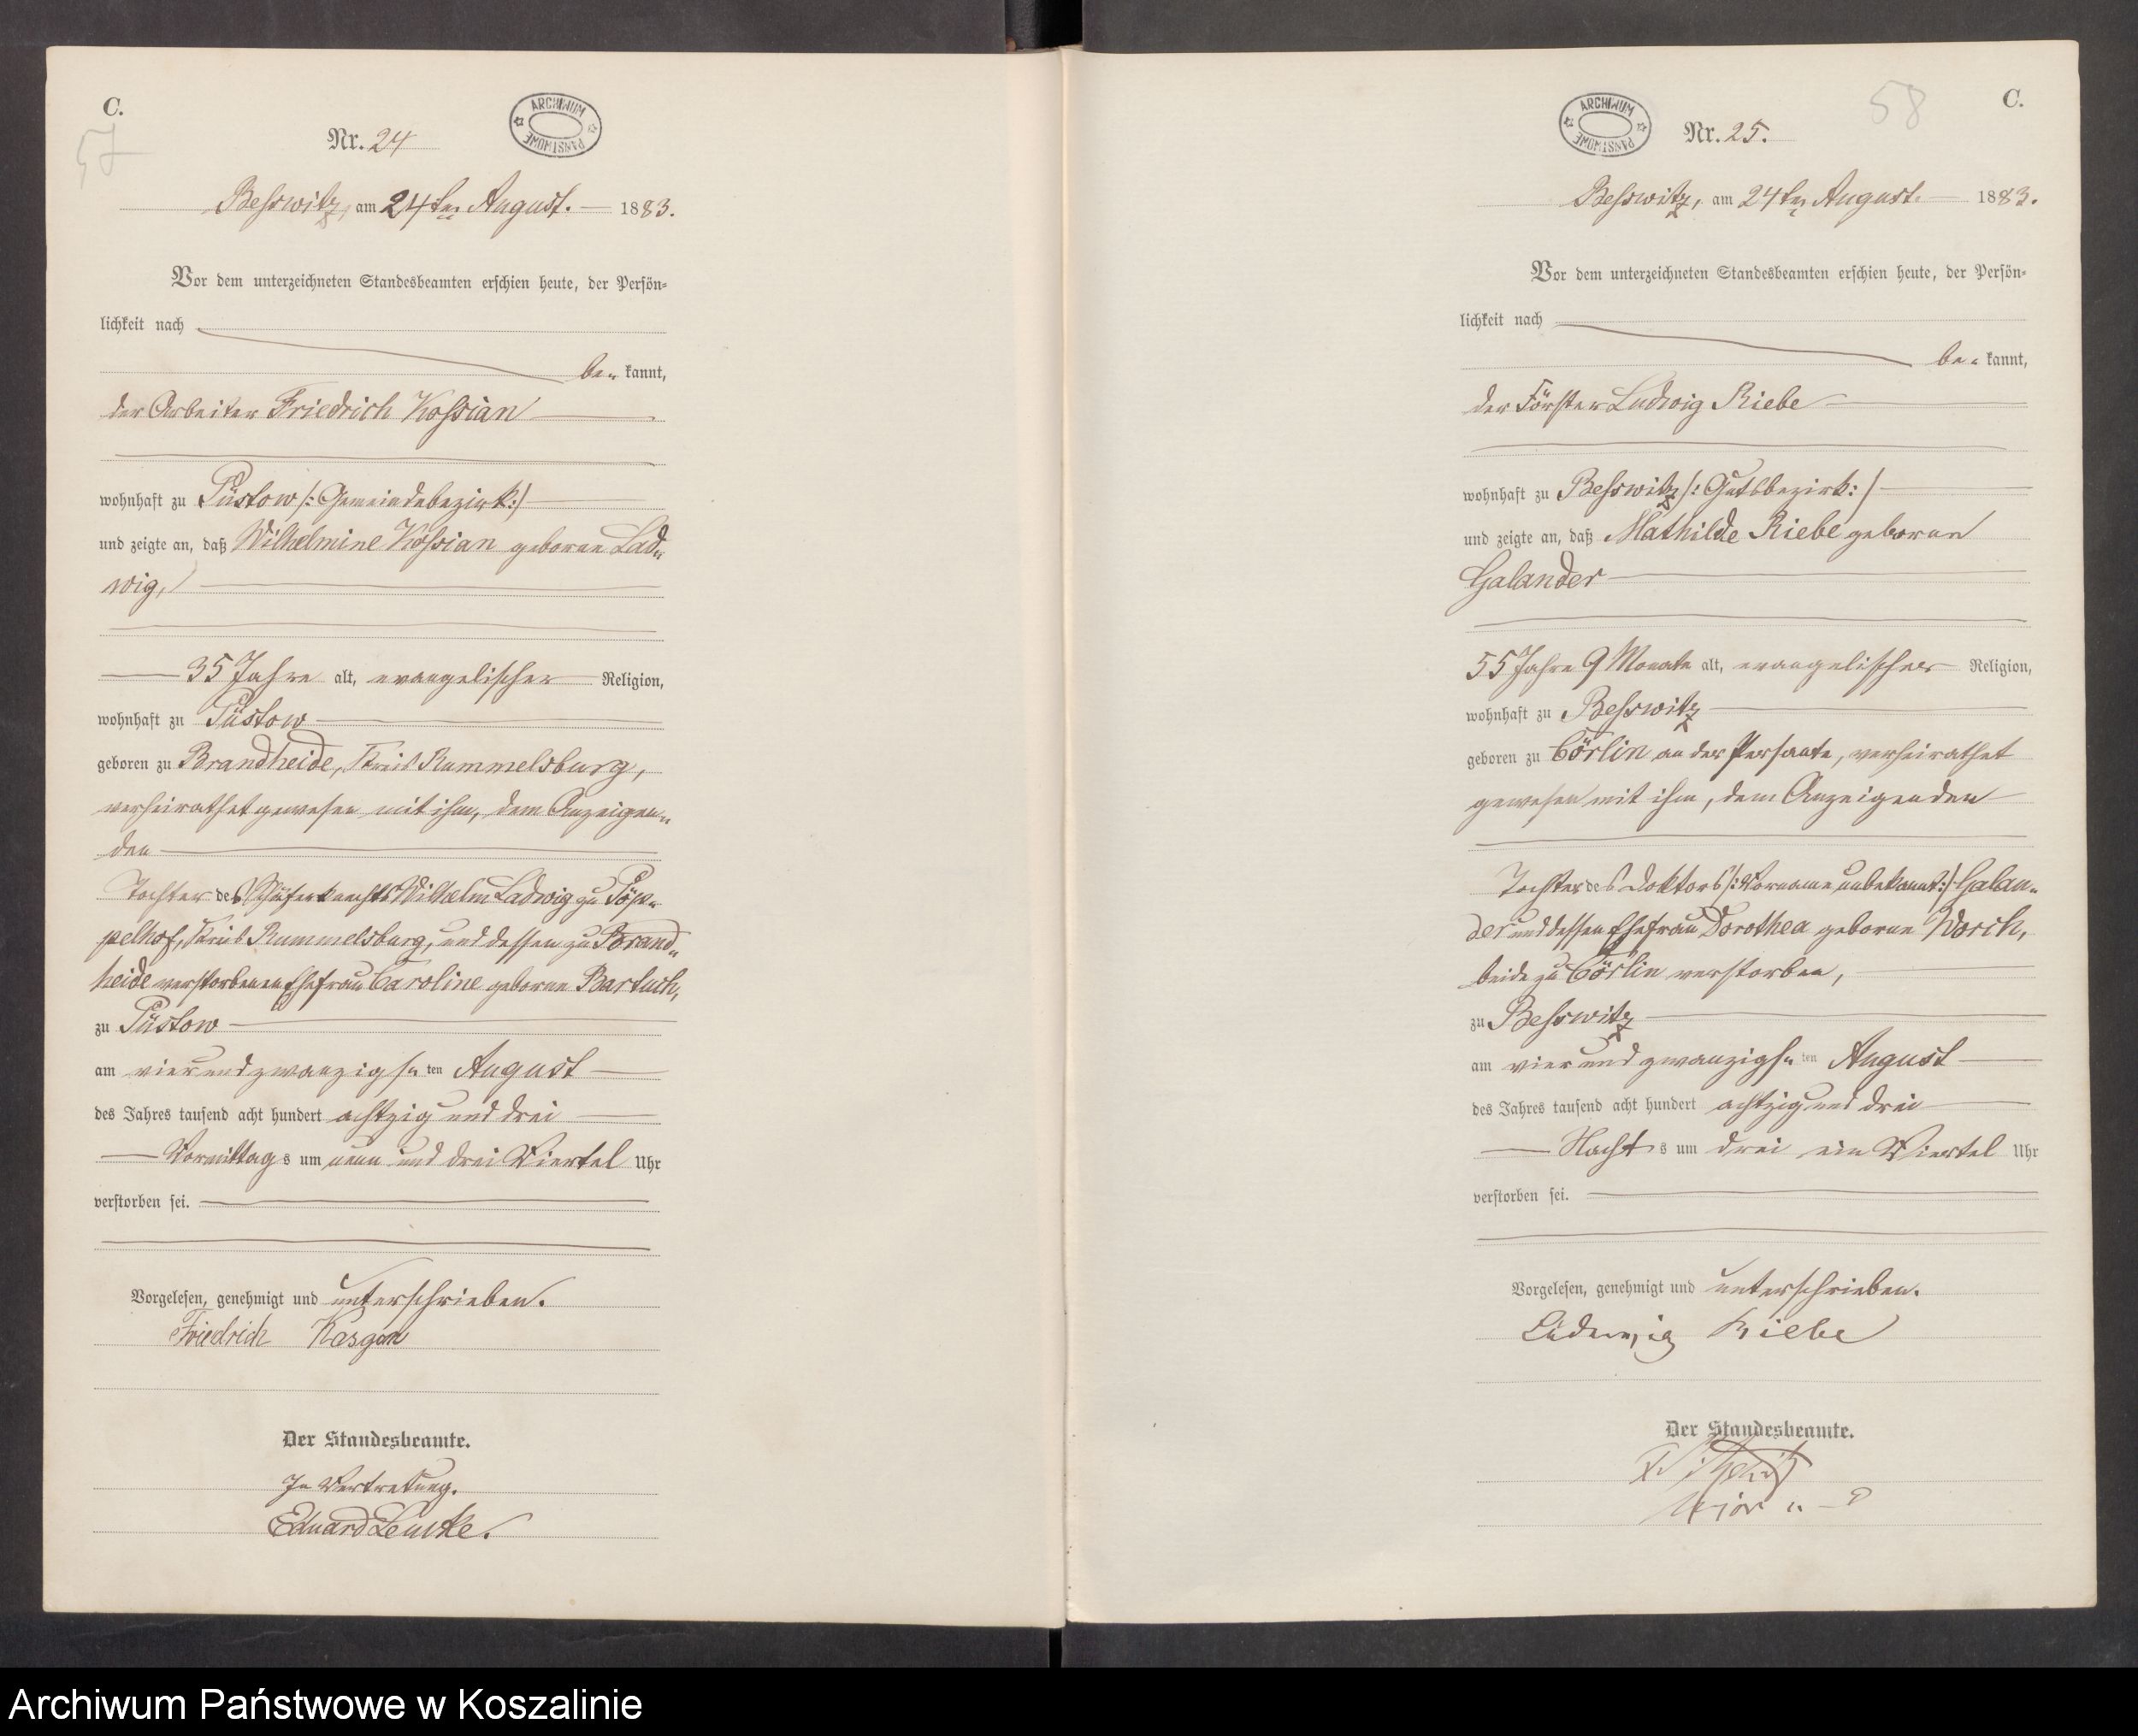 C.
57
Nr. 24
ARCHIWUM PAŃSTWOWE
Beßwitz, am 24ten August. 1883.
Vor dem unterzeichneten Standesbeamten erschien heute, der Persön-
lichkeit nach
be- kannt,
der Arbeiter Friedrich Koßian
wohnhaft zu Püstow /: Gemeindebezirk :/
und zeigte an, daß Wilhelmine Koßian geborne Lad-
wig,
35 Jahre alt, evangelischer Religion,
wohnhaft zu Püstow
geboren zu Brandheide, Kreis Rummelsburg,
verheirathet gewesen mit ihm, dem Anzeigen-
den
Tochter des Schäferknechts Wilhelm Ladwig zu Pöp-
pelhof, Kreis Rummelsburg, und dessen zu Brand-
heide verstorbenen Ehefrau Caroline geborne Bartuch,
zu Püstow
am vier und zwanzigsten August
des Jahres tausend acht hundert achtzig und drei
Vormittags um neun und drei Viertel Uhr
verstorben sei.
Vorgelesen, genehmigt und unterschrieben.
Friedrich
Der Standesbeamte.
In Vertretung.
Eduard
58
C.
ARCHIWUM PAŃSTWOWE
Nr. 25.
Beßwitz, am 24ten August. 1883.
Vor dem unterzeichneten Standesbeamten erschien heute, der Persön-
lichkeit nach
be- kannt,
der Förster Ludwig Riebe
wohnhaft zu Beßwitz /: Gutsbezirk :/
und zeigte an, daß Mathilde Riebe geborne
Galander
55 Jahre 9 Monate alt, evangelischer Religion,
wohnhaft zu Beßwitz
geboren zu Cörlin an der Persante, verheirathet
gewesen mit ihm, dem Anzeigenden
Tochter des Doktors /: Vorname unbekannt :/ Galan-
der und dessen Ehefrau Dorothea geborne Worch,
beide zu Cörlin verstorben,
zu Beßwitz
am vier und zwanzigsten August
des Jahres tausend acht hundert achtzig und drei
Nachts um drei ein Viertel Uhr
verstorben sei.
Vorgelesen, genehmigt und unterschrieben.
Ludwig Riebe
Der Standesbeamte.
Archiwum Państwowe w Koszalinie